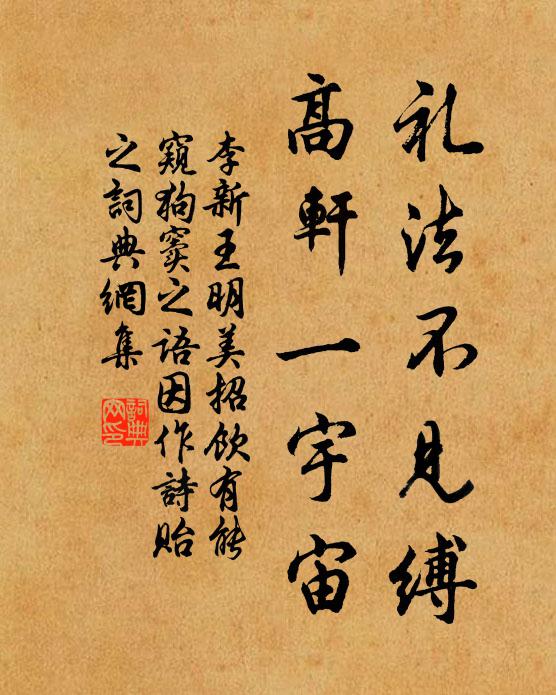 礼法不見縛
高軒一宇宙
李新王明美招飲有能
窺狗竇之語因作詩貽
之詞典網集
詞典
网印